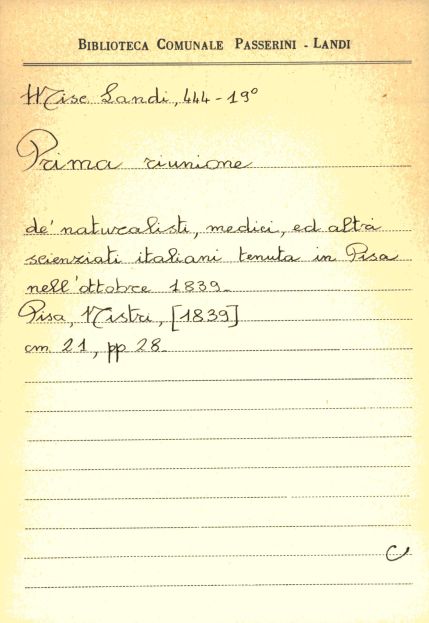 BIBLIOTECA COMUNALE PASSERINI - LANDI
Misc Landi, 444 - 19°
Prima riunione
de' naturalisti, medici, ed altri
scienziati italiani tenuta in Pisa
nell'ottobre 1839.
Pisa, Nistri, [1839]
cm 21, pp 28.
C